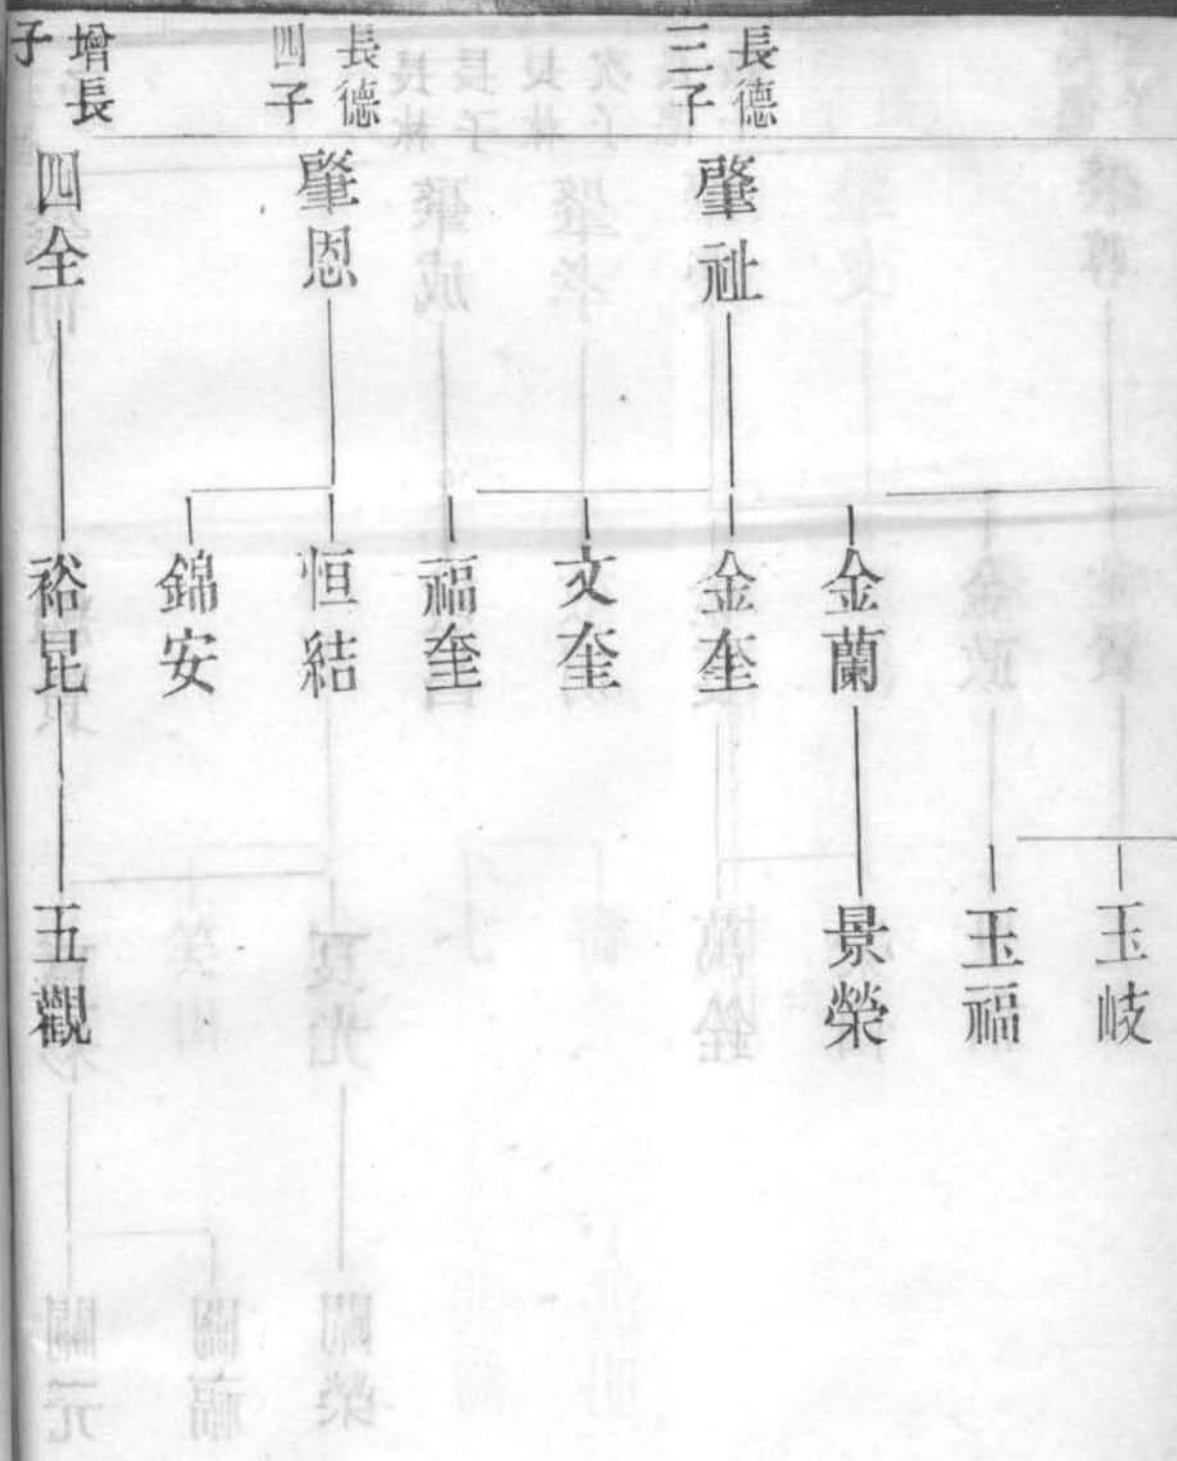 長德
三子
肇祉
長德
四子
肇恩
增長
子
四全
金蘭
金奎
文奎
福奎
恒結
錦安
裕昆
玉岐
玉福
景榮
五觀